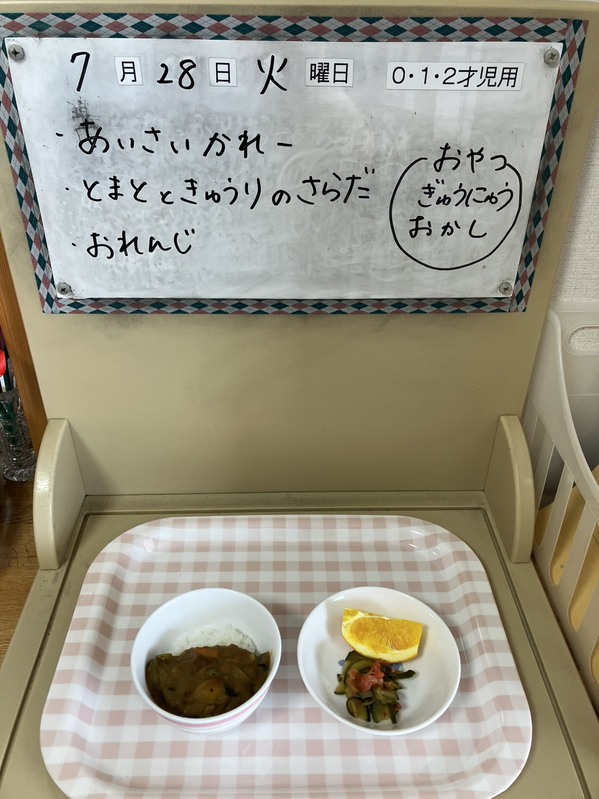 7月28日 火曜日 0・1・2才児用
・あいさいかれー
・とまとときゅうりのさらだ
・おれんじ
おやつ
ぎゅうにゅう
おかし